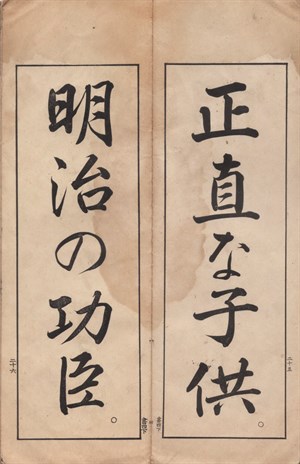 正直な子供。
二十五
明治の功臣。
二十六